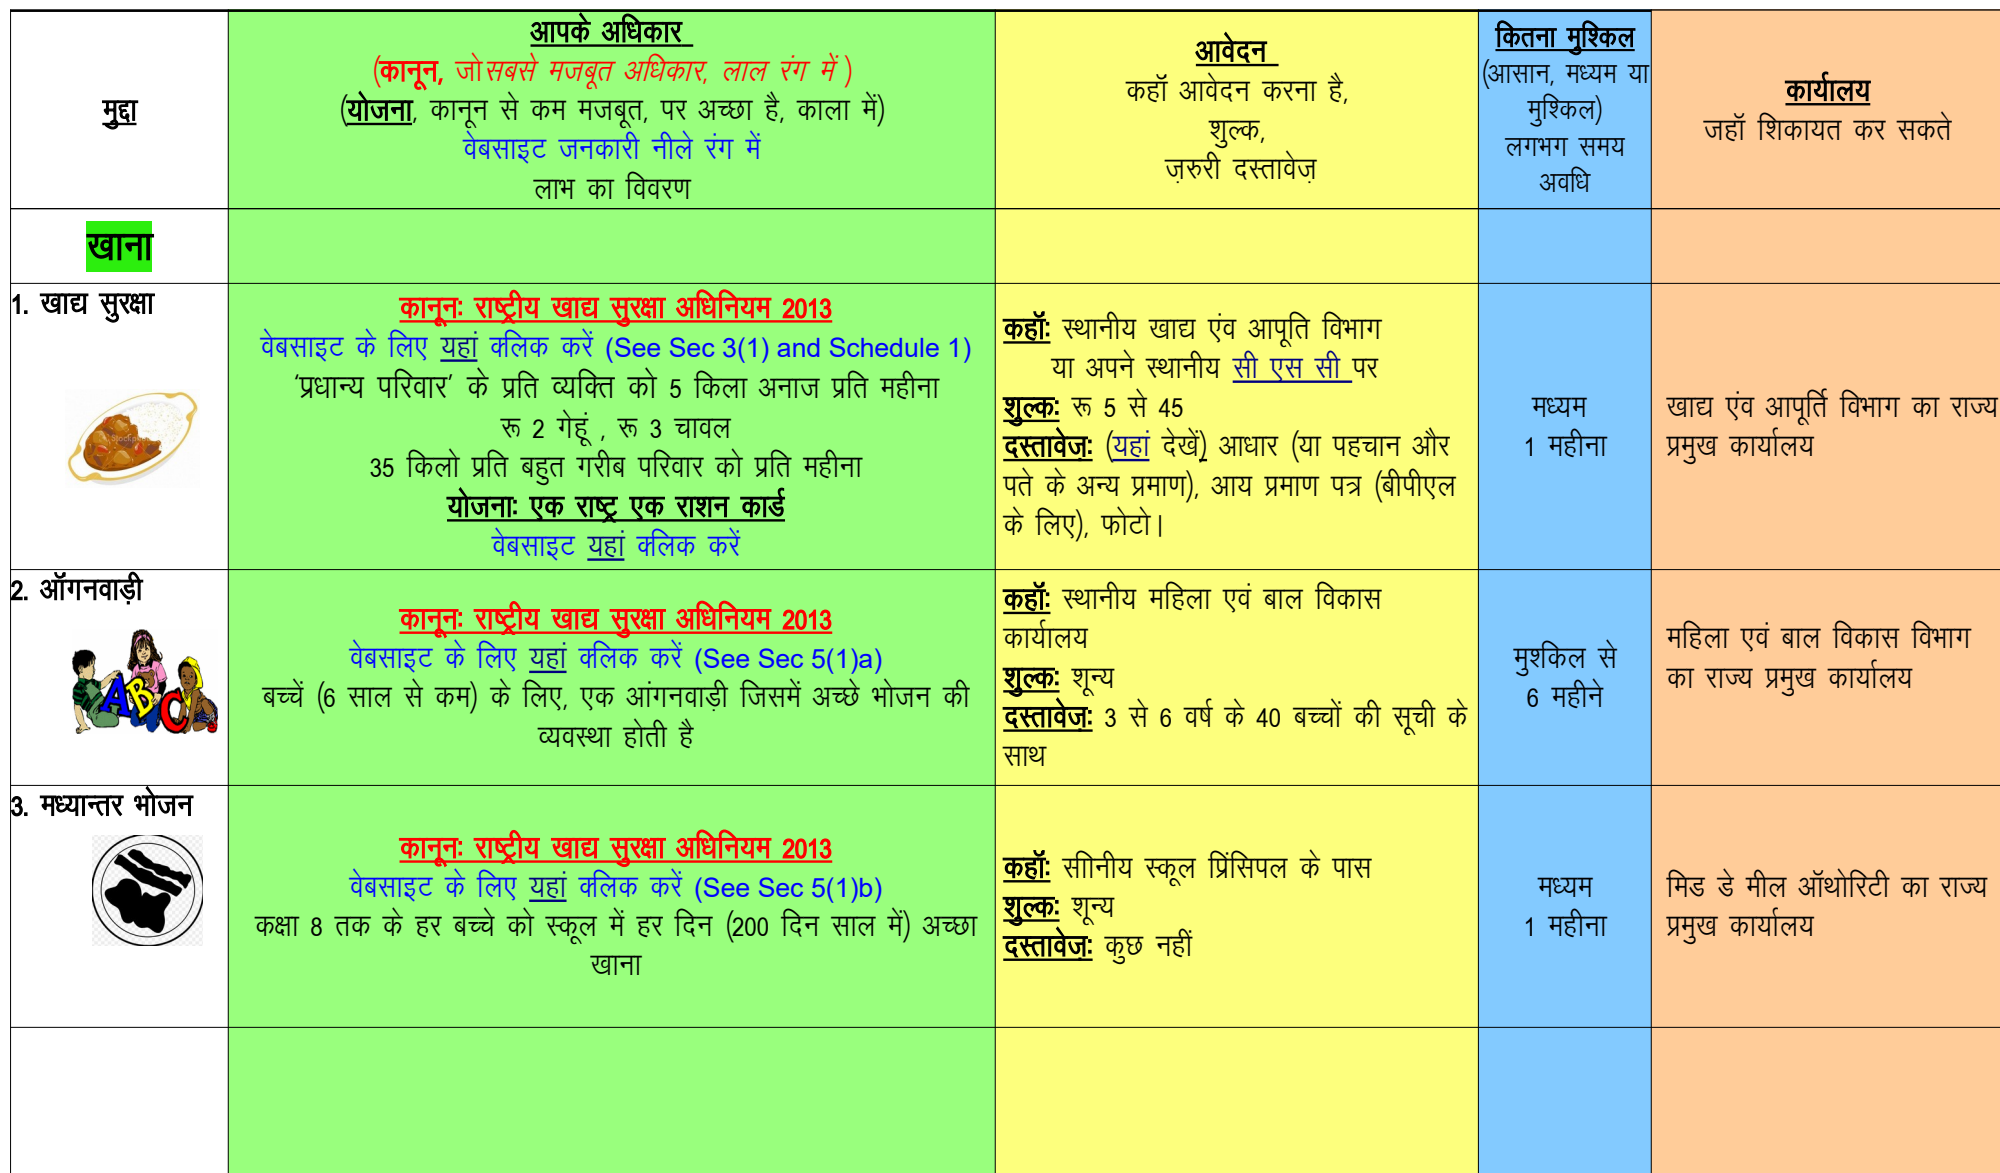 मुद्दा
आपके अधिकार
(कानून, जो सबसे मजबूत अधिकार, लाल रंग में )
(योजना, कानून से कम मजबूत, पर अच्छा है, काला में)
वेबसाइट जनकारी नीले रंग में
लाभ का विवरण
आवेदन
कहॉ आवेदन करना है,
शुल्क,
ज़रुरी दस्तावेज़
कितना मुश्किल
(आसान, मध्यम या
मुश्किल)
लगभग समय
अवधि
कार्यालय
जहॉ शिकायत कर सकते
खाना
1. खाद्य सुरक्षा
कानूनः राष्ट्रीय खाद्य सुरक्षा अधिनियम 2013
वेबसाइट के लिए यहां क्लिक करें (See Sec 3(1) and Schedule 1)
'प्रधान्य परिवार' के प्रति व्यक्ति को 5 किला अनाज प्रति महीना
रू 2 गेहूं , रू 3 चावल
35 किलो प्रति बहुत गरीब परिवार को प्रति महीना
योजनाः एक राष्ट्र एक राशन कार्ड
वेबसाइट यहां क्लिक करें
कहॉः स्थानीय खाद्य एंव आपूति विभाग
या अपने स्थानीय सी एस सी पर
शुल्कः रू 5 से 45
दस्तावेज़ः (यहां देखें) आधार (या पहचान और
पते के अन्य प्रमाण), आय प्रमाण पत्र (बीपीएल
के लिए), फोटो।
मध्यम
1 महीना
खाद्य एंव आपूर्ति विभाग का राज्य
प्रमुख कार्यालय
2. ऑगनवाड़ी
कानूनः राष्ट्रीय खाद्य सुरक्षा अधिनियम 2013
वेबसाइट के लिए यहां क्लिक करें (See Sec 5(1)a)
बच्चें (6 साल से कम) के लिए, एक आंगनवाड़ी जिसमें अच्छे भोजन की
व्यवस्था होती है
कहॉः स्थानीय महिला एवं बाल विकास
कार्यालय
शुल्कः शून्य
दस्तावेज़ः 3 से 6 वर्ष के 40 बच्चों की सूची के
साथ
मुशकिल से
6 महीने
महिला एवं बाल विकास विभाग
का राज्य प्रमुख कार्यालय
3. मध्यान्तर भोजन
कानूनः राष्ट्रीय खाद्य सुरक्षा अधिनियम 2013
वेबसाइट के लिए यहां क्लिक करें (See Sec 5(1)b)
कक्षा 8 तक के हर बच्चे को स्कूल में हर दिन (200 दिन साल में) अच्छा
खाना
कहॉः साीनीय स्कूल प्रिंसिपल के पास
शुल्कः शून्य
दस्तावेज़ः कुछ नहीं
मध्यम
1 महीना
मिड डे मील ऑथोरिटी का राज्य
प्रमुख कार्यालय
ABC